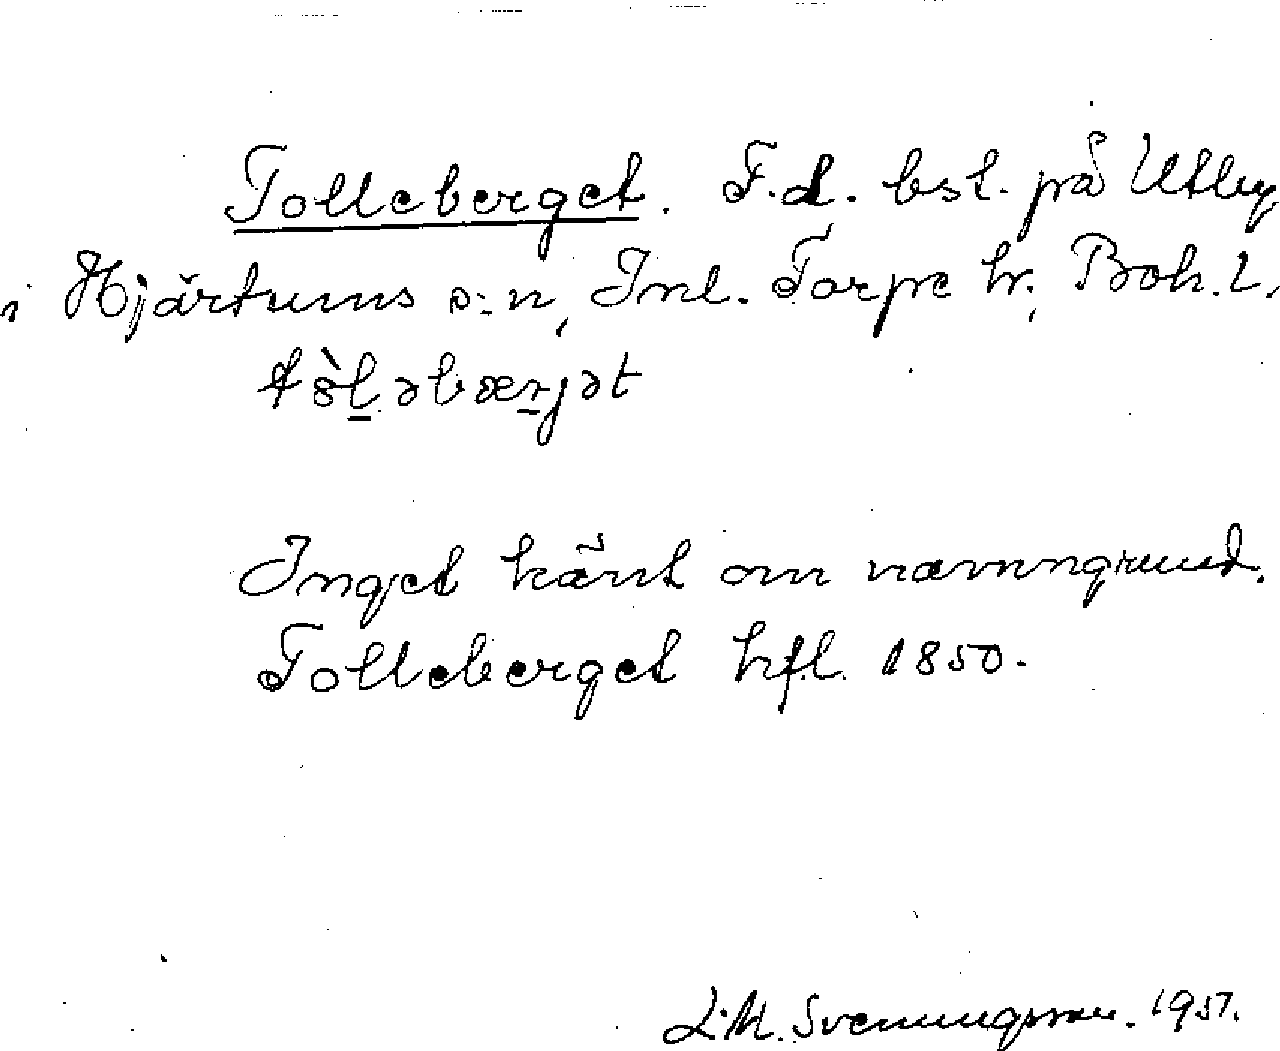 Tolleberget. F.d. bst. på Utby
i Hjärtums s:n, Inl. Torpe hr, Boh. l.
tòl̠əbær̠jət
Inget känt om namngrund.
Tolleberget hfl. 1850.
L.M. Svenungsson. 1957.